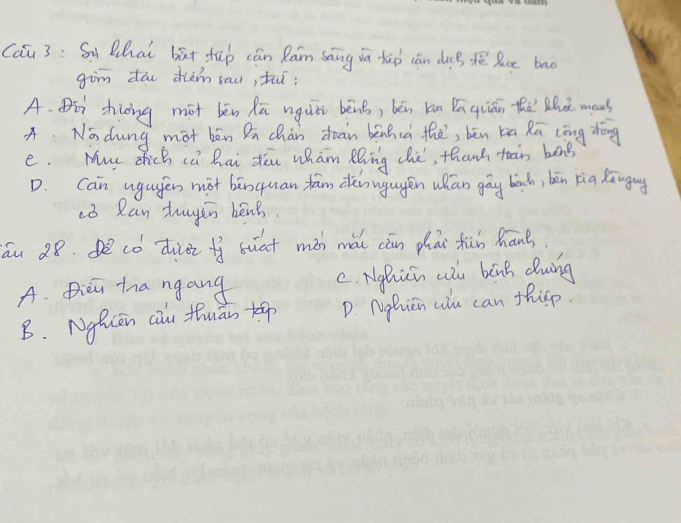 Câu 3: Sự khác biệt tiếp cận lâm sàng và tiếp cận dịch tễ học bao
gồm đặc điểm sau, trừ:
A. Đối tượng một bên là người bệnh, bên kia là quần thể khỏe mạnh
A. Nội dung một bên là chẩn đoán bệnh cá thể, bên kia là cộng đồng
C. Mục đích cả hai đều nhằm khống chế, thanh toán bệnh
D. Căn nguyên một bên quan tâm đến nguyên nhân gây bệnh, bên kia là nguy
cơ lan truyền bệnh.
âu 28. Để có được tỷ suất mới mắc cần phải tiến hành.
A. Điều tra ngang
C. Nghiên cứu bệnh chứng
B. Nghiên cứu thuần tập
D. Nghiên cứu can thiệp.